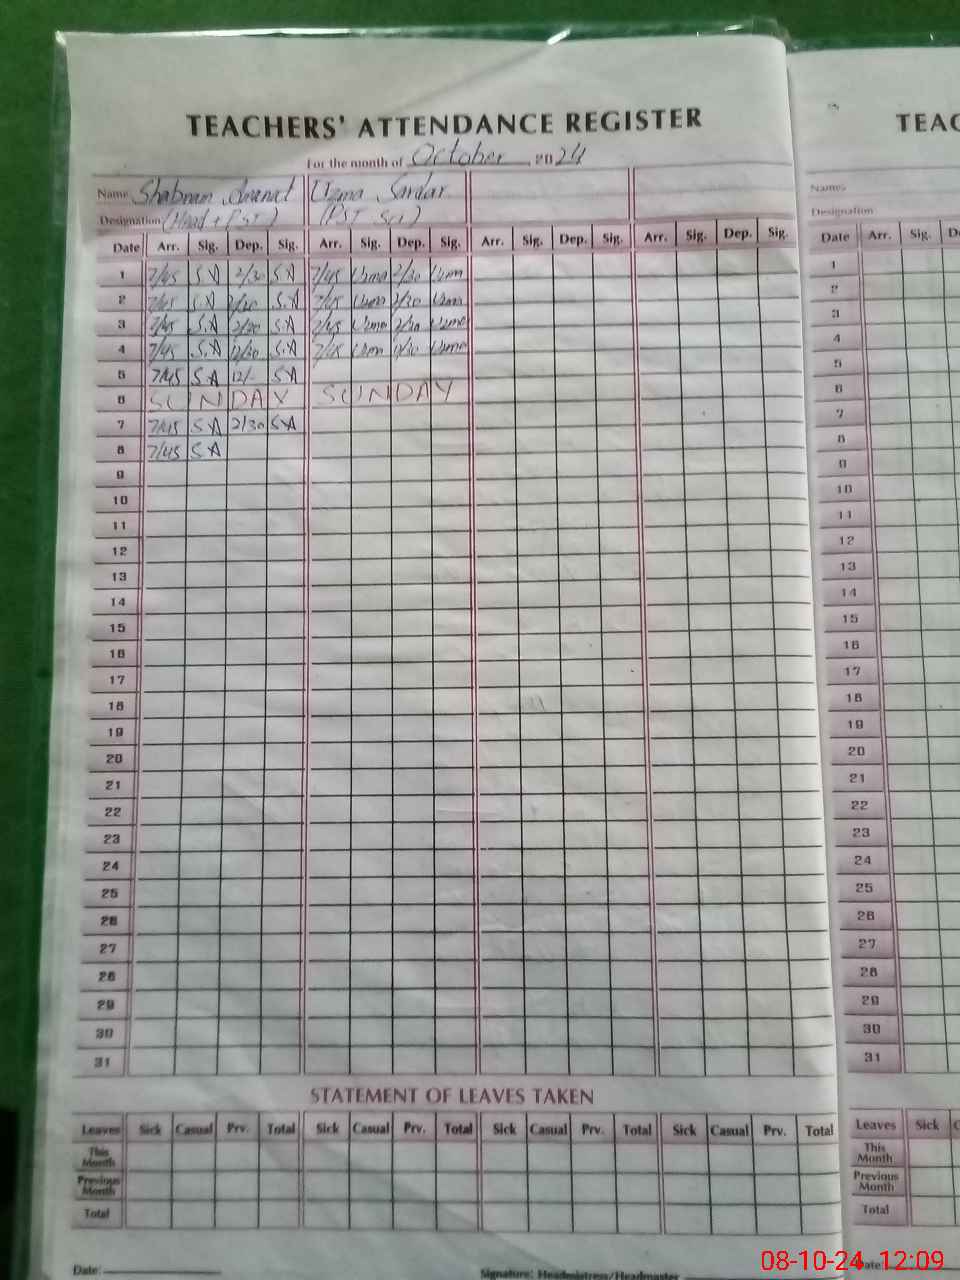 TEACHERS' ATTENDANCE REGISTER
TEAC
For the month of October 2024
Name Shabnam Uzma Sardar
Name:
Designation (Head + PST) (PST
Designation
Date Arr. Sig. Dep. Sig. Arr. Sig. Dep. Sig. Arr. Sig. Dep. Sig. Arr. Sig. Dep. Sig.
Date Arr. Sig. D
1 7/45 S.A 2/30 S.A 7/45 Uzma 2/30 Uzma 1
2 7/45 S.A 2/30 S.A 7/45 Uzma 2/30 Uzma 2
3 7/45 S.A 2/30 S.A 7/45 Uzma 2/30 Uzma 3
4 7/45 S.A 12/30 S.A 7/45 Uzma Uzma 4
5 7/45 S.A 12/- S.A 5
6 SUNDAY SUNDAY 6
7 7/45 S.A 2/30 S.A 7
8 7/45 S.A 8
9 9
10 10
11 11
12 12
13 13
14 14
15 15
16 16
17 17
18 18
19 19
20 20
21 21
22 22
23 23
24 24
25 25
26 26
27 27
28 28
29 29
30 30
31 31
STATEMENT OF LEAVES TAKEN
Leaves Sick Casual Prv. Total Sick Casual Prv. Total Sick Casual Prv. Total Sick Casual Prv. Total
Leaves Sick C
This Month
This Month
Previous Month
Previous Month
Total
Total
Date:
Signature: Headmistress/Headmaster
Date:
08-10-24 12:09